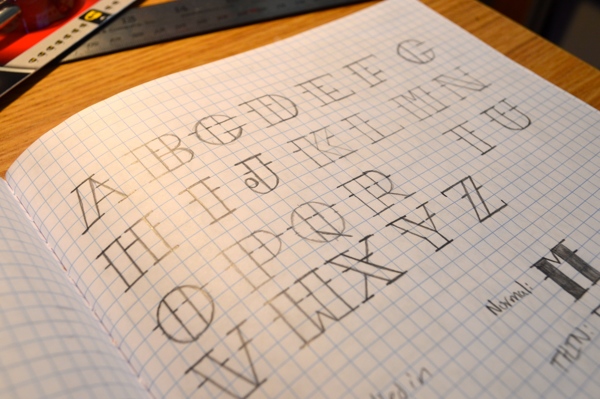 A B C D E F G
H I J K L M N
O P Q R T U
V W X Y Z
Normal: M
THIN:
in